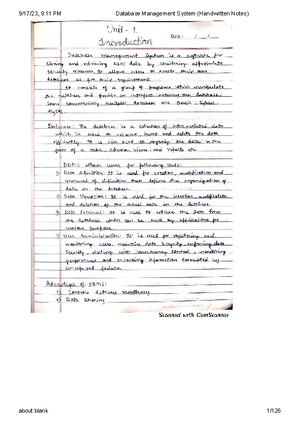 9/17/23, 9:11 PM Database Management System (Handwritten Notes)
Unit - 1
Date: / /
Introduction
Database management System is a software for
storing and retrieving users' data by considering appropriate
security measures. It allows users to create their own
databases as per their requirement.
It consists of a group of programs which manipulate
the database and provide an interface between the database.
Some commercially available databases are
Database: The database is a collection of inter-related data
which is used to retrieve, insert and delete the data
efficiently. It is also used to organize the data in the
form of a table, schema, views, and reports etc.
DBMS allows users for following tasks:
Data Definition: It is used for creation, modification and
removal of definition that defines the organization of
data in the database.
Data Updation: It is used for the insertion, modification
and deletion of the actual data in the database.
Data Retrieval: It is used to retrieve the data from
the database which can be used by applications for
various purposes.
User Administration: It is used for registering and
monitoring users, maintain data integrity, enforcing data
security, dealing with concurrency control, monitoring
performance and recovering information corrupted by
unexpected failure.
Advantages of DBMS:
Controls database redundancy
Data Sharing
Scanned with CamScanner
about:blank 1/126